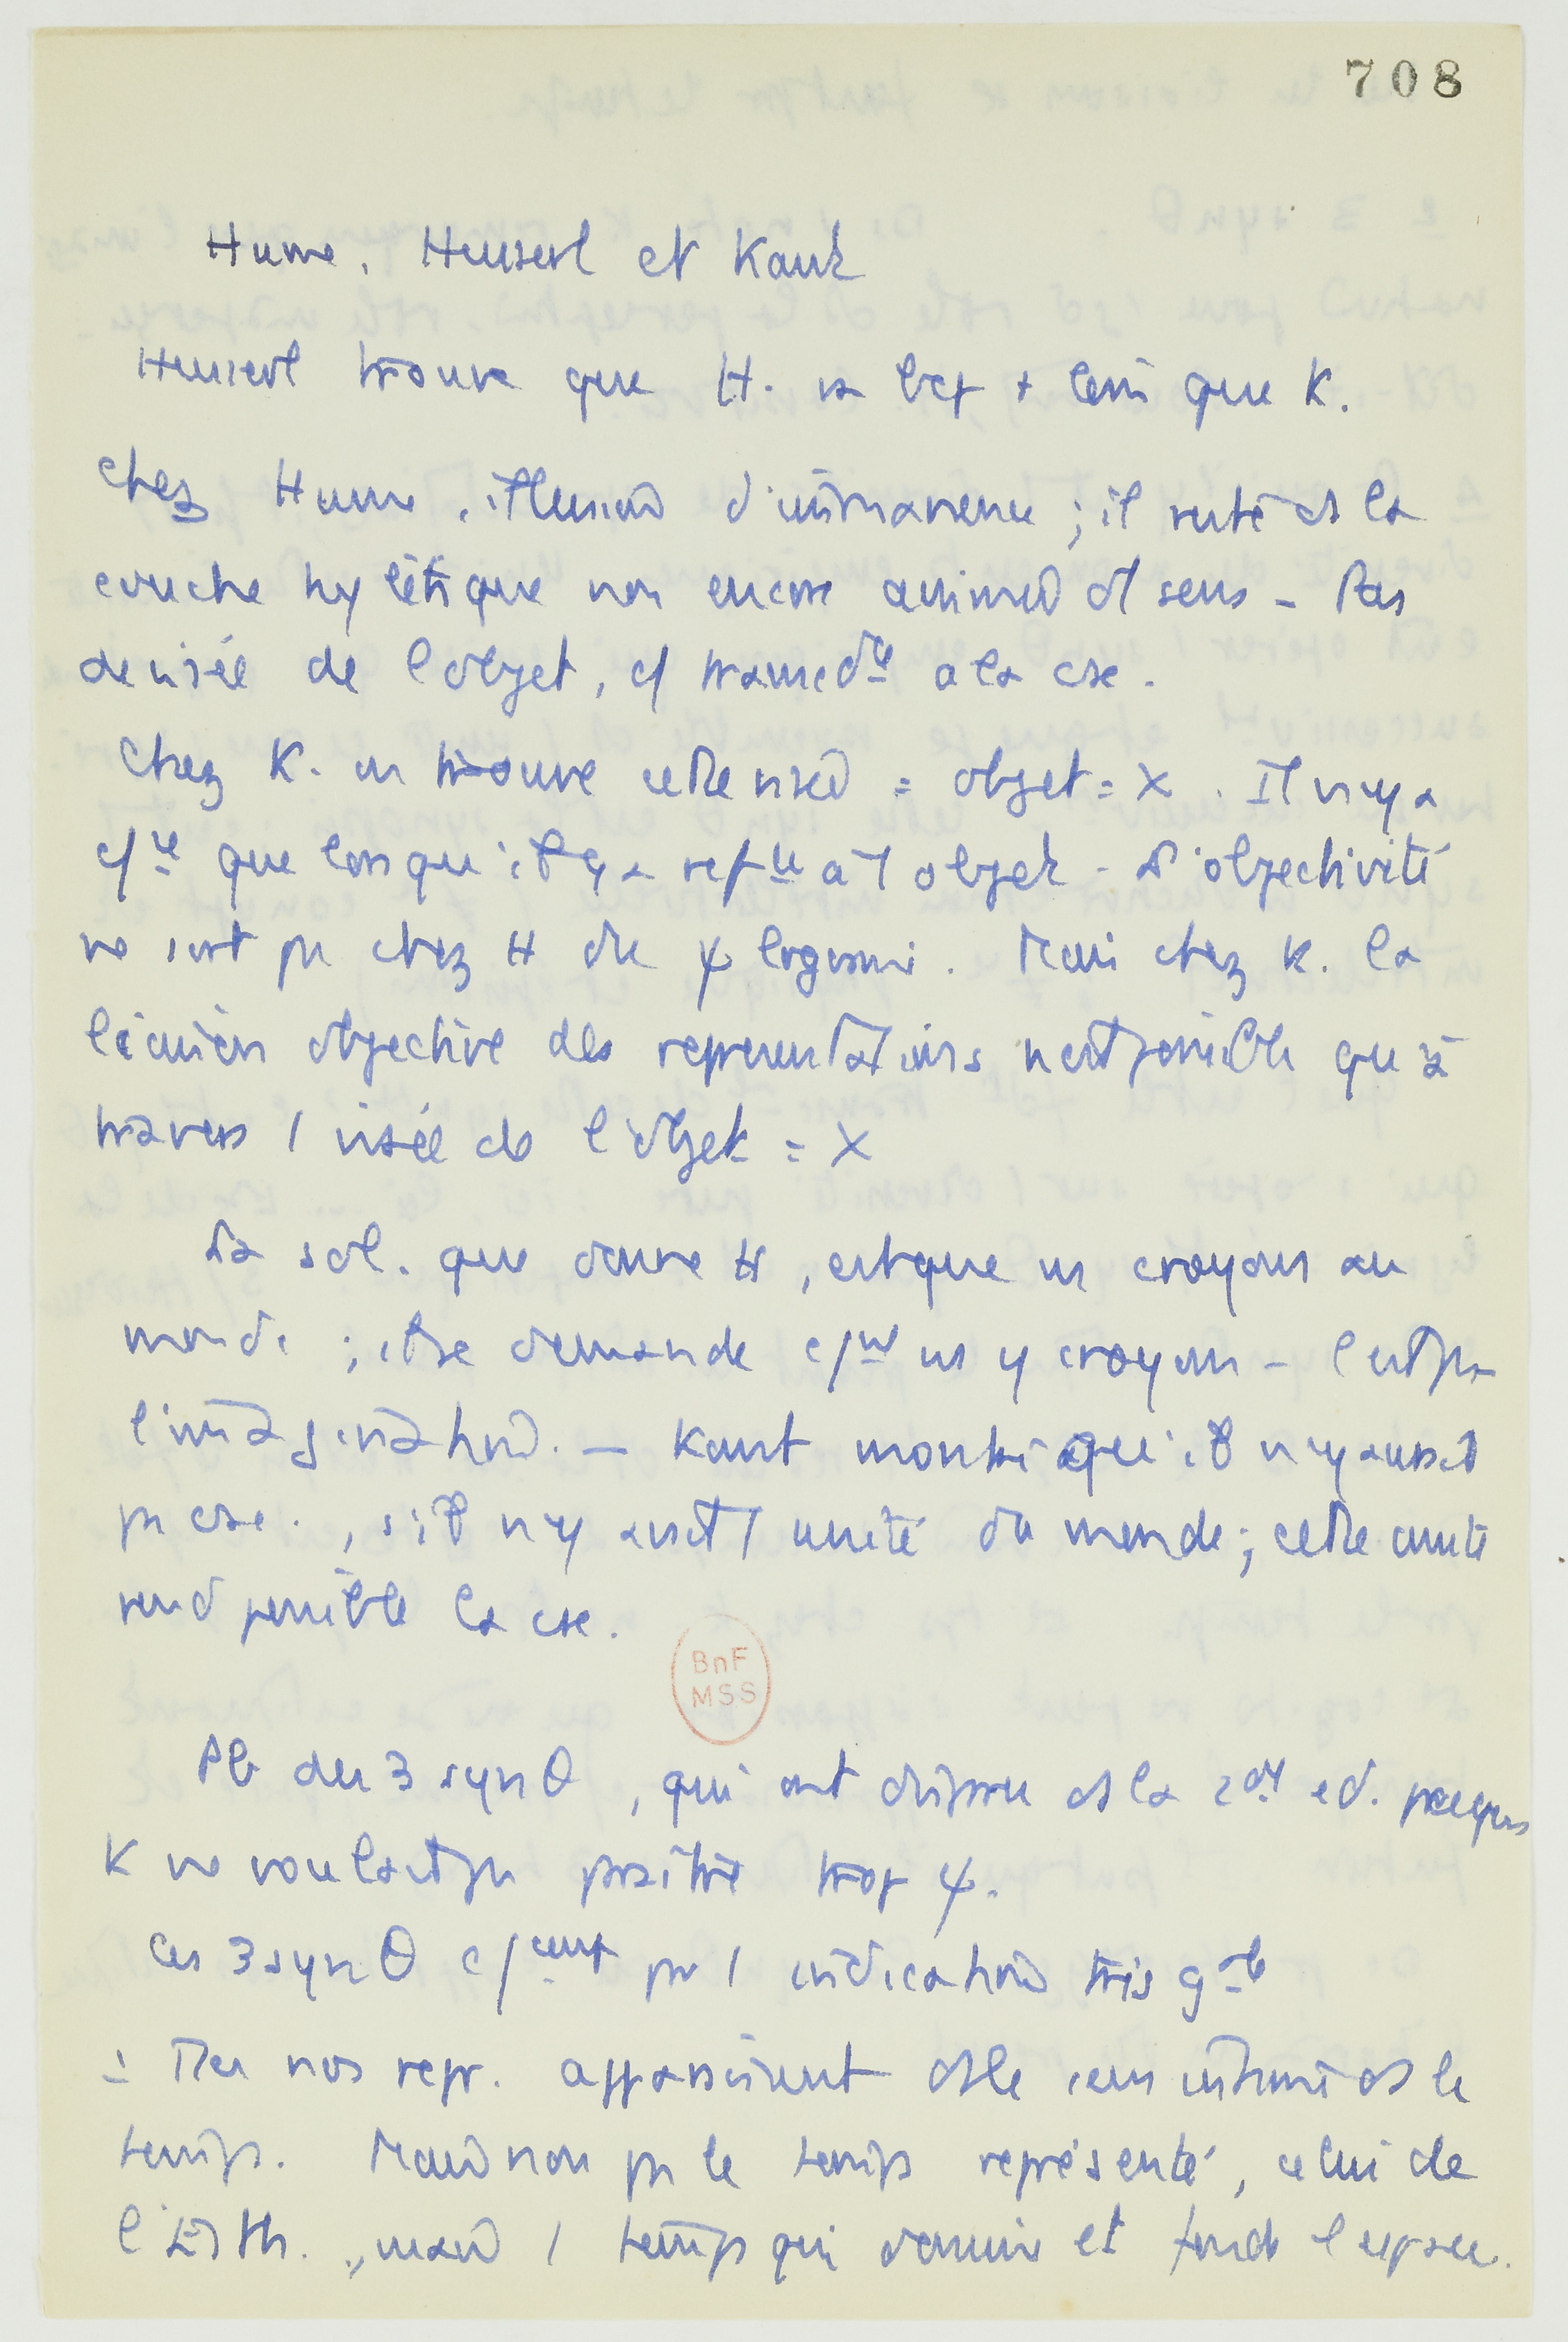 708
Hume, Husserl et Kant
Husserl trouve que H. va bcp + loin que K.
Chez Hume, illusion d'immanence ; il reste ds la
couche hylétique non encore animée dt sens - Pas
de visée de l'objet, c/ transcdte à la cse.
Chez K. on trouve cette visée = objet = X. Il n'y a
c/ce que lorsqu'il y a refce à l'objet - L'objectivité
ne sort pas chez H du ψlogisme. Mais chez K. la
liaison objective des représentations n'est possible qu'à
travers / visée de l'objet = X
La sol. que donne H, est que ns croyons au
monde ; il se demande c/nt ns y croyons - C'est par
l'imagination. - Kant montre qu'il n'y aurait
pas cse., s'il n'y avait / unité du monde ; cette unité
rend possible la cse.
BnF
MSS
Pb des 3 synθ, qui ont disparu ds la 2de ed. parce que
K ne voulait pas paraître trop ψ.
Ces 3 synθ c/cent par / indication très gale
: Ttes nos repr. appartiennent ds le sens intime ds le
temps. Mais non pas le temps représenté, celui de
l'Esth., mais / temps qui domine et fonde l'espace.